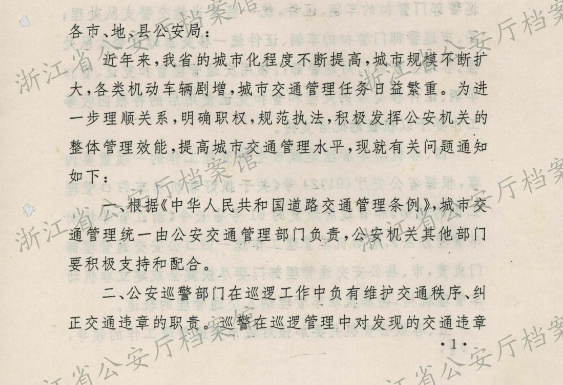 各市、地、县公安局：
近年来，我省的城市化程度不断提高，城市规模不断扩
大，各类机动车辆剧增，城市交通管理任务日益繁重。为进
一步理顺关系，明确职权，规范执法，积极发挥公安机关的
整体管理效能，提高城市交通管理水平，现就有关问题通知
如下：
一、根据《中华人民共和国道路交通管理条例》，城市交
通管理统一由公安交通管理部门负责，公安机关其他部门
要积极支持和配合。
二、公安巡警部门在巡逻工作中负有维护交通秩序、纠
正交通违章的职责。巡警在巡逻管理中对发现的交通违章
·1·
浙江省公安厅档案馆
浙江省公安厅档案馆
浙江省公安厅档案馆